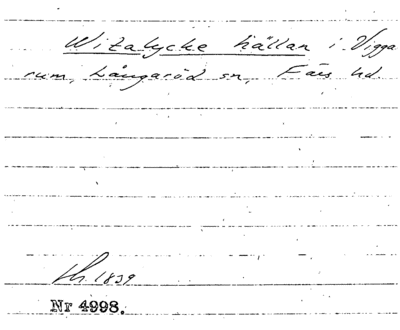 Witalycke källan i Vigga
rum, Långaröd sn, Färs hd.
th. 1839
Nr 4998.